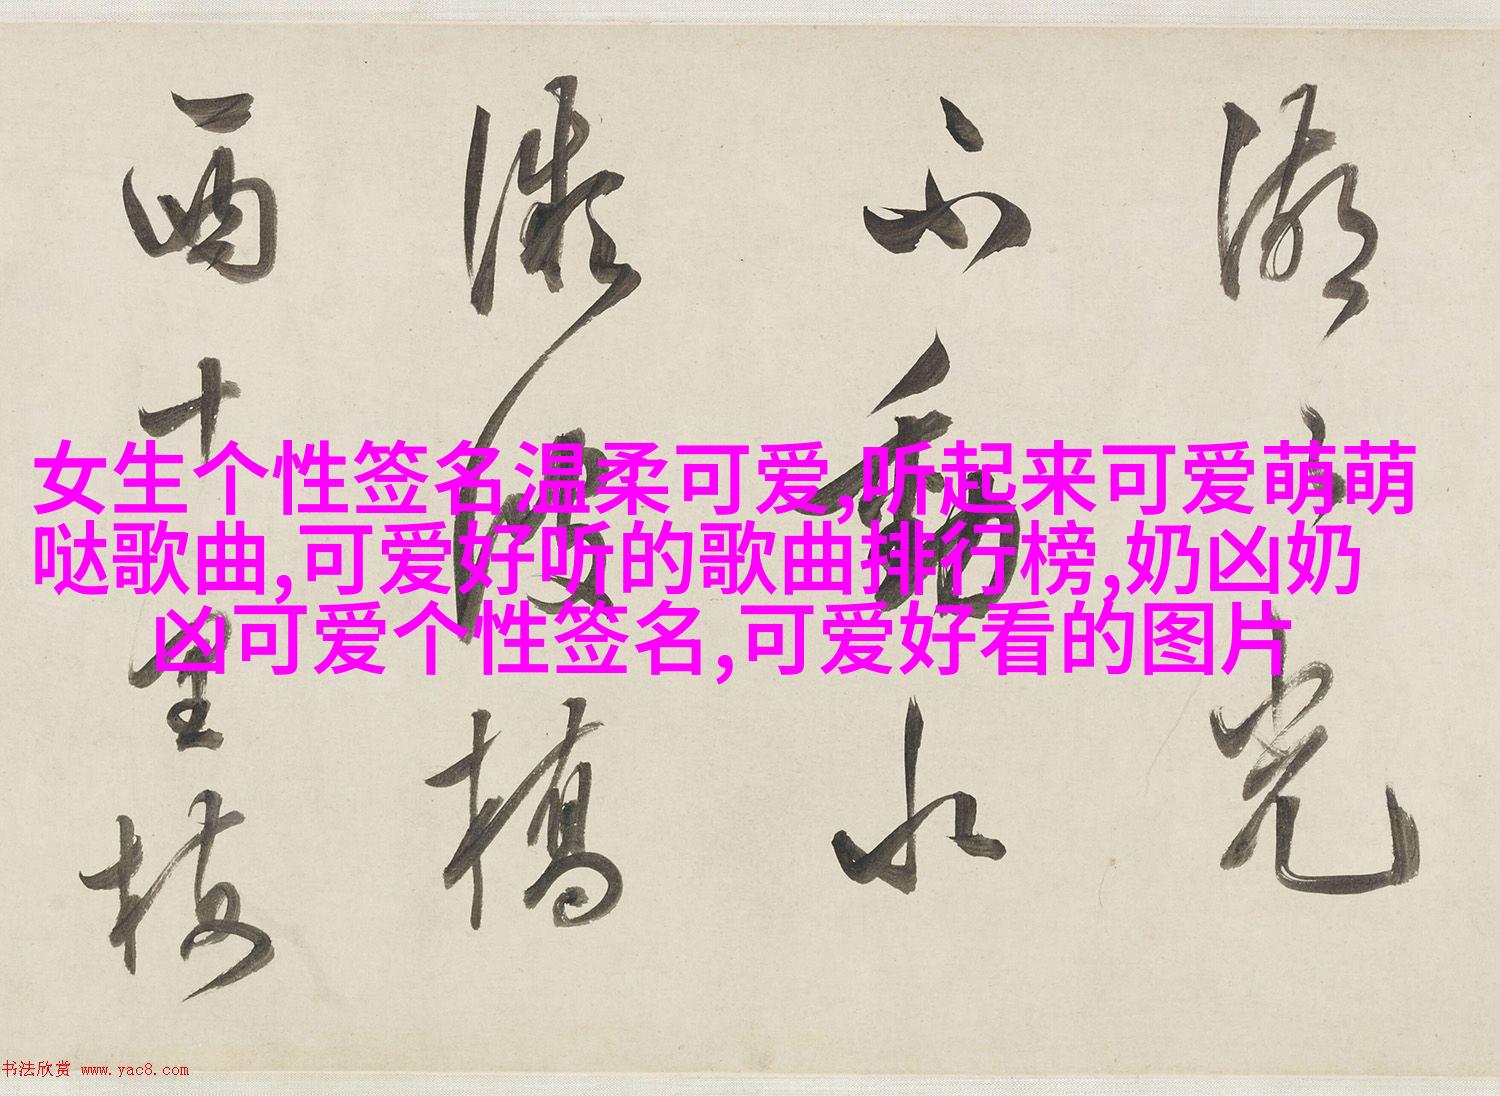 女生个性签名温柔可爱,听起来可爱萌萌
哒歌曲,可爱好听的歌曲排行榜,奶凶奶
凶可爱个性签名,可爱好看的图片
湖光
不動水
波橋
西十里
书法欣赏 www.yac8.com